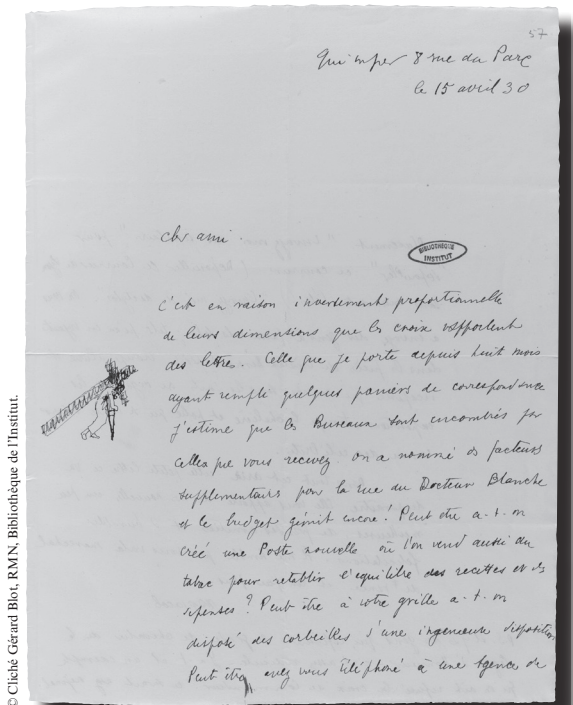 57
Quimper 8 rue du Parc
le 15 avril 30
cher ami.
BIBLIOTHÈQUE
INSTITUT
C'est en raison inversement proportionnelle
de leurs dimensions que les croix rapportent
des lettres. Celle que je porte depuis huit mois
ayant rempli quelques paniers de correspondance
j'estime que les Bureaux sont encombrés par
celles que vous recevez. on a nommé des facteurs
supplementairs pour la rue du Docteur Blanche
et le budget gémit encore ! Peut etre a-t-on
créé une Poste nouvelle où l'on vend aussi du
tabac pour retablir l'equilibre des recettes et des
depenses ? Peut être à votre grille a-t-on
disposé des corbeilles d'une ingenieuse disposition
Peut être avez vous téléphoné à une Agence de
© Cliché Gérard Blot, RMN, Bibliothèque de l'Institut.